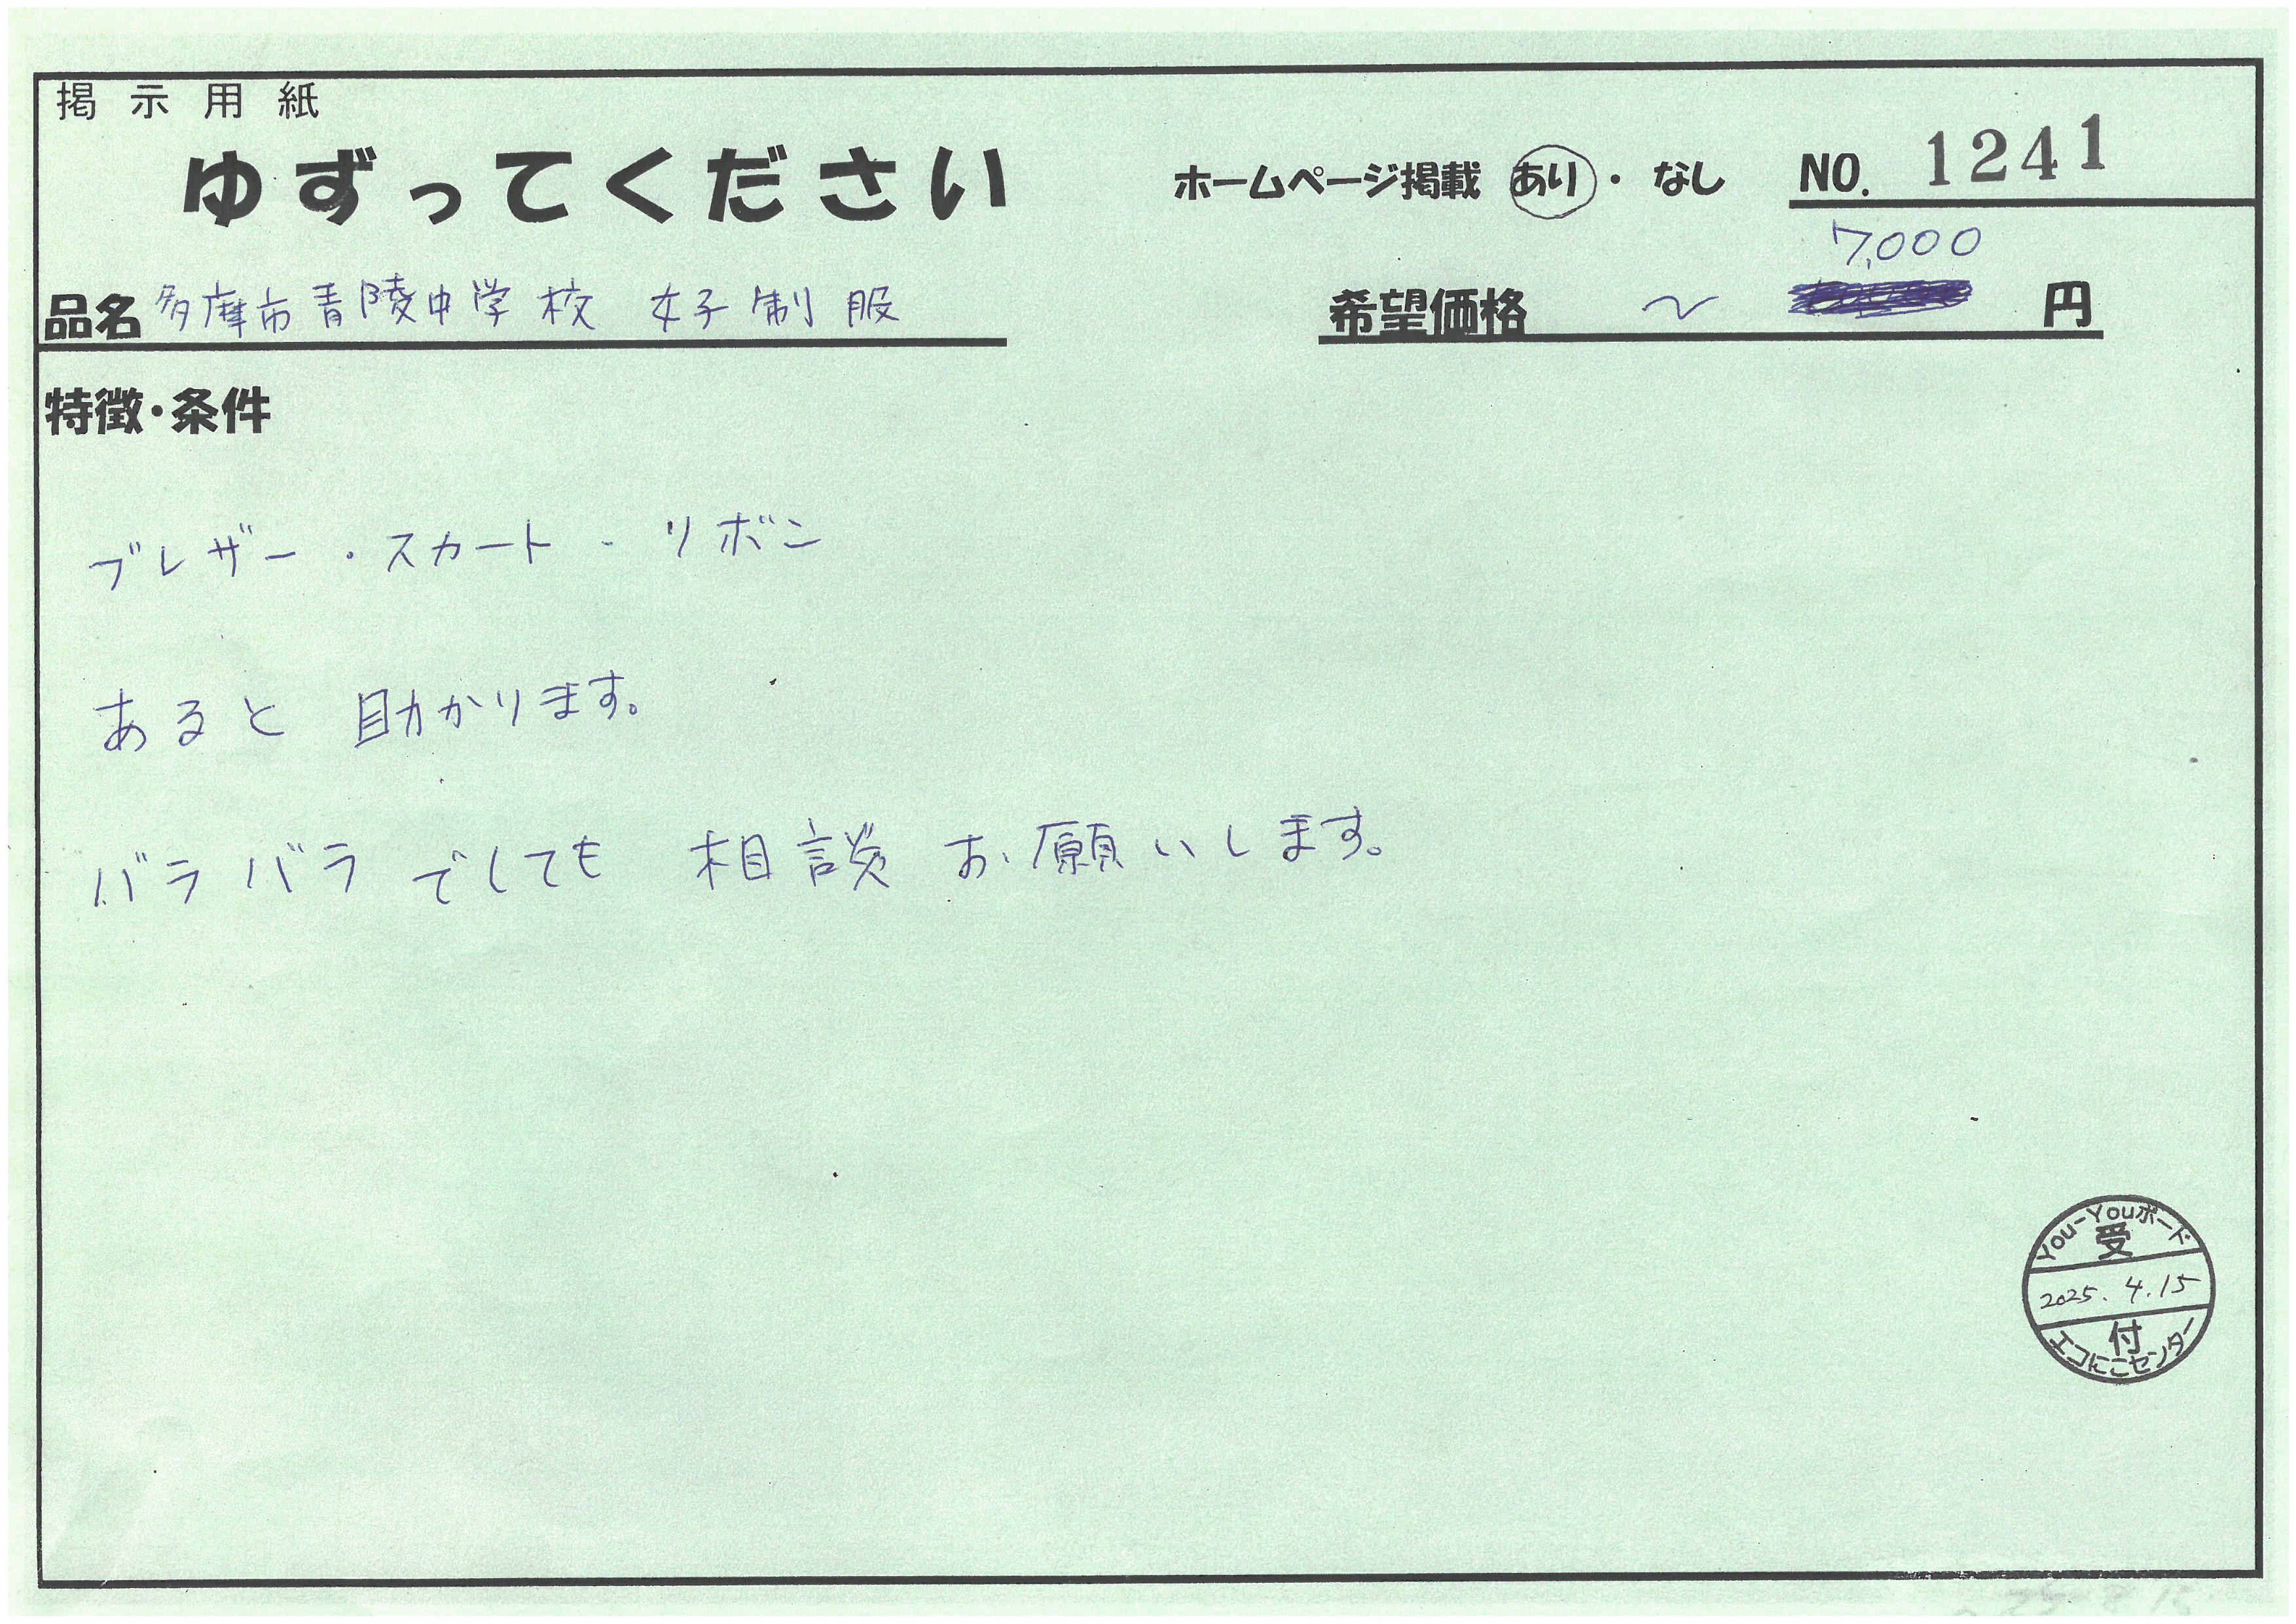 掲示用紙
ゆずってください
ホームページ掲載 あり・なし NO. 1241
品名 多摩市青陵中学校 女子制服
希望価格 〜 7,000 円
特徴・条件
ブレザー・スカート・リボン
あると 助かります。
バラバラでしても 相談お願いします。
You-Youボード
受
2025.4.15
付
エコにこセンター